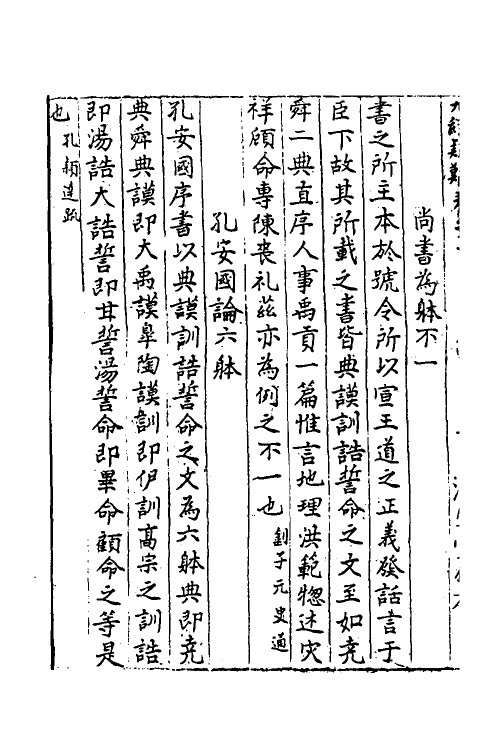 尚書為躰不一
書之所主本於號令所以宣王道之正義發話言于
臣下故其所載之書皆典謨訓誥誓命之文至如堯
舜二典直序人事禹貢一篇惟言地理洪範惣述灾
祥顧命専陳喪礼茲亦為例之不一也 劉子元史通
孔安國論六躰
孔安國序書以典謨訓誥誓命之文為六躰典即堯
典舜典謨即大禹謨皐陶謨訓即伊訓髙宗之訓誥
即湯誥大誥誓即甘誓湯誓命即畢命顧命之等是
也 孔穎達疏